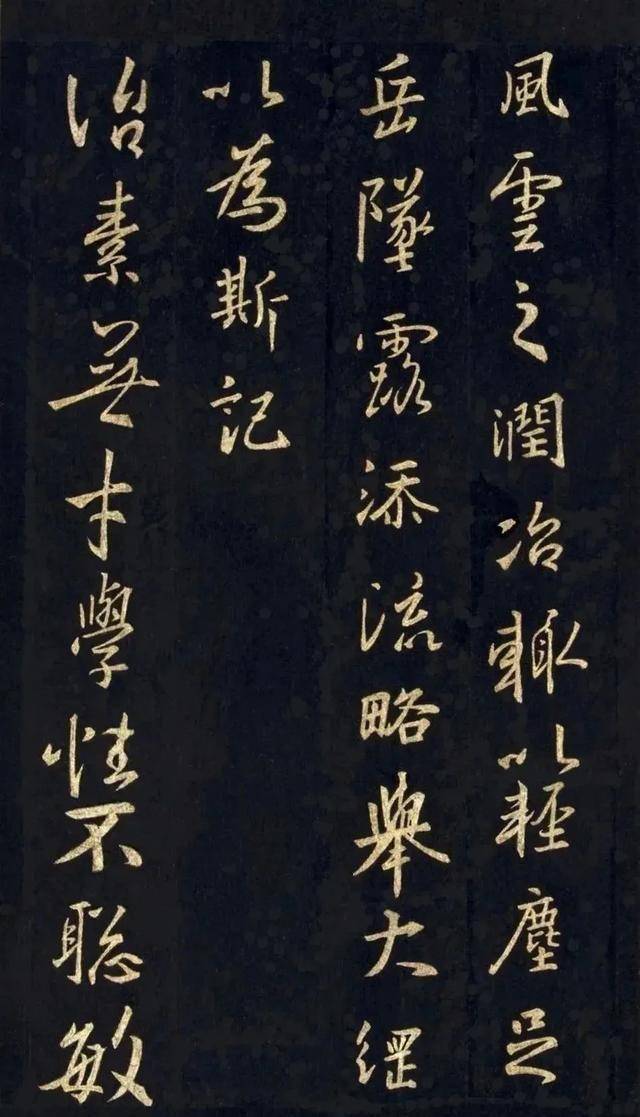 風雲之潤冶輒以輕塵足
岳墜露添流略舉大綱
以為斯記
治素無才學性不聡敏